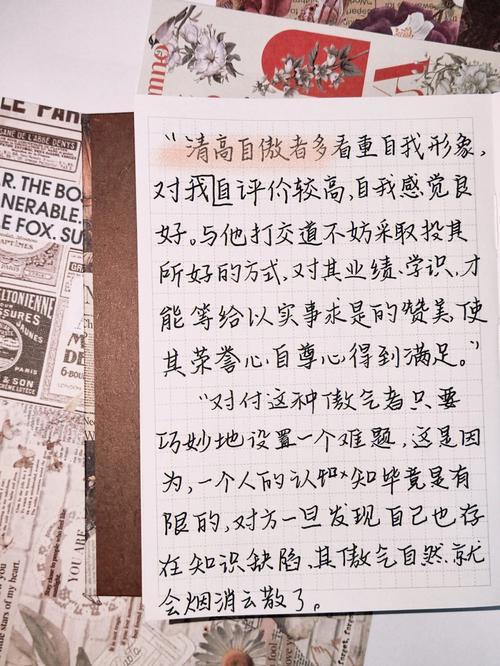 LE PARI
CAISSE A L'ABBÉ DENYS
R. THE BO
NERABLE.
LE FOX. SU
ELTONIENNE
PRESSURES
PARIS
"清高自傲者多看重自我形象,
对我自评价较高,自我感觉良
好。与他打交道不妨采取投其
所好的方式,对其业绩、学识、才
能等给以实事求是的赞美,使
其荣誉心、自尊心得到满足。"
"对付这种傲气者只要
巧妙地设置一个难题,这是因
为,一个人的认知×知毕竟是有
限的,对方一旦发现自己也存
在知识缺陷、其傲气自然、就
会烟消云散了。